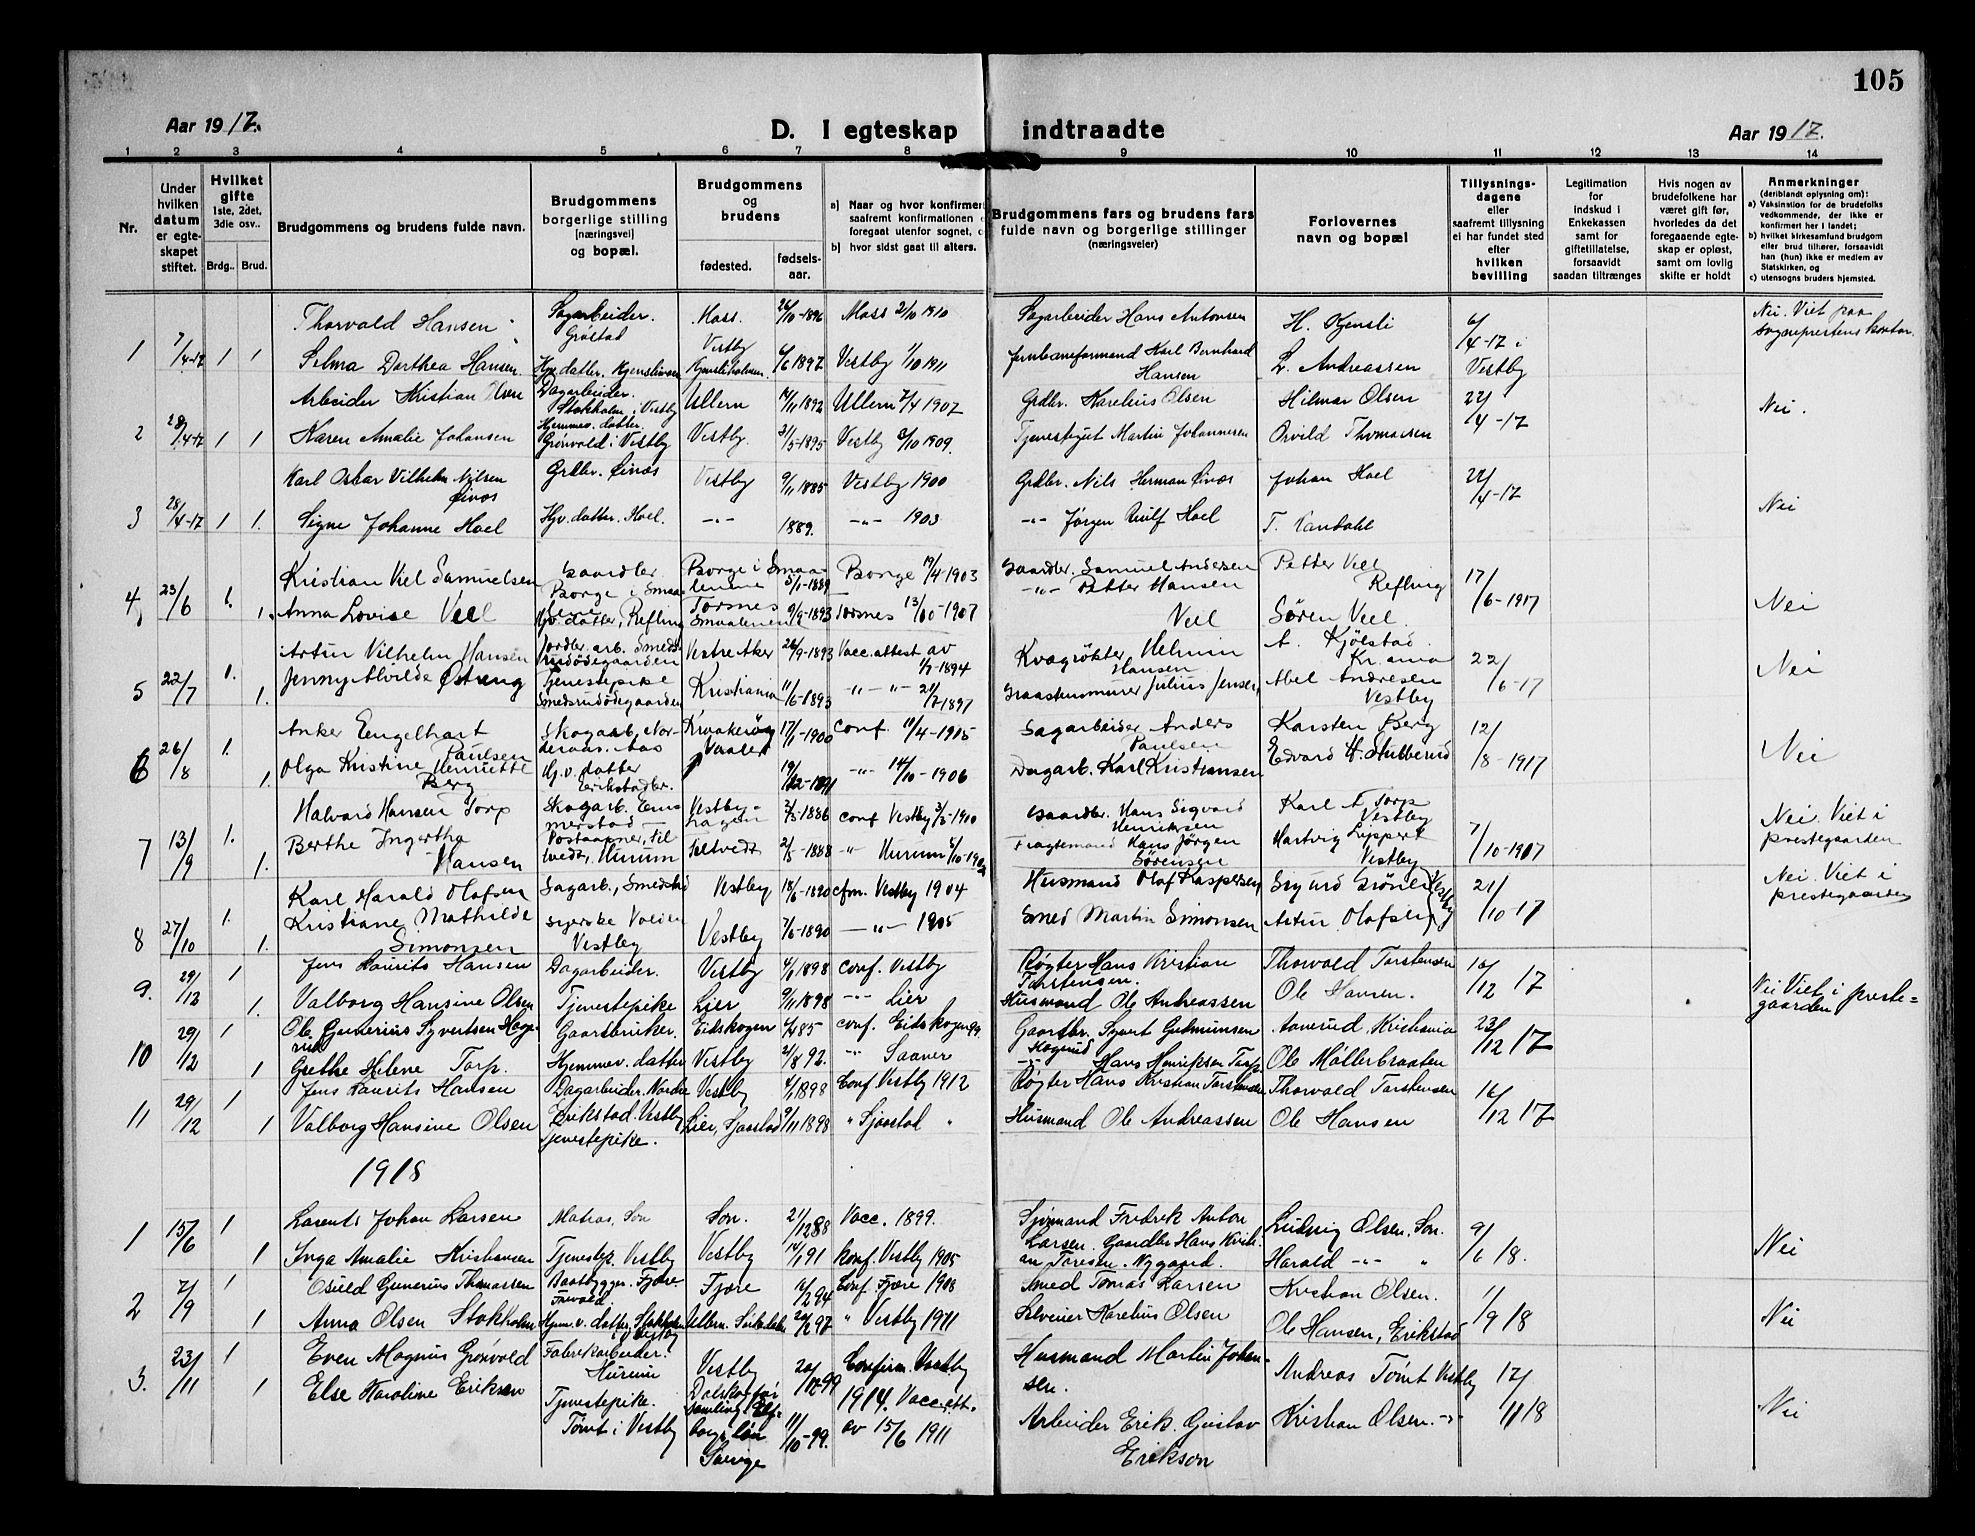 105
Aar 1917.
D. I egteskap indtraadte
Aar 1917.
1 2 3 4 5 6 7 8 9 10 11 12 13 14
Nr.
Under hvilken datum er egteskapet stiftet.
Hvilket gifte 1ste, 2det, 3die osv..
Brdg.. Brud.
Brudgommens og brudens fulde navn.
Brudgommens borgerlige stilling (næringsvei) og bopæl.
Brudgommens og brudens
fødested. fødselsaar.
a) Naar og hvor konfirmer
saafremt konfirmationen
foregaat utenfor sognet,
b) hvor sidst gaat til alters.
Brudgommens fars og brudens fars fulde navn og borgerlige stillinger (næringsveier)
Forlovernes navn og bopæl
Tillysningsdagene eller saafremt tillysning ei har fundet sted efter hvilken bevilling
Legitimation for Indskud i Enkekassen samt for giftetillatelse, forsaavidt saadan tiltrænges
Hvis nogen av brudefolkene har været gift før, hvorledes da det foregaaende egteskap er opløst, samt om lovlig skifte er holdt
Anmerkninger
(deriblandt oplysning om):
a) Vaksination for de brudefolks vedkommende, der ikke er konfirmert her i landet;
b) hvilket kirkesamfund brudgom eller brud tilhører, forsaavidt han (hun) ikke er medlem av Statskirken, og
c) utensogns bruders hjemsted.
1 7/4-17 1 1
Thorvald Hansen Sagarbeider. Grøstad Moss. 26/10-1896 Moss 2/10 1910 Sagarbeider Hans Antonsen H. Kjensli 6/4-17 i Vestby Nei. Viet paa Sogneprestens kontor.
Selma Dorthea Hansen. Hjv. datter. Vestby 6/6 1897 Vestby 1/10 1911 Jernbaneformand Karl Bernhard Hansen L. Andreassen
2 28/4-17 1 1
Arbeider Kristian Olsen Dagarbeider. Stokholm i Vestby Ullern 14/11 1892 Ullern 7/4 1907 Grdbr. Karelius Olsen Hilmar Olsen 22/4-17 Nei.
Karen Amalie Johansen Hjemmev. datter. Grønvold i Vestby Vestby. 31/5-1895 Vestby 3/10 1909. Martin Johannesen Osvild Thomassen
3 28/4-17 1 1.
Karl Oskar Vilhelm Nilsen Øivos Grdbr. Øivos Vestby 9/11 1885 Vestby 1900 Grdbr. Nils Herman Øivos Johan Hoel 22/4-17 Nei
Signe Johanne Hoel Hjv. datter. Hoel. -"- 1889. -"- 1903 -"- Jørgen Hoel T. Vandahl
4 23/6 1. 1.
Kristian Vel Samuelsen Gaardbr Borge i Smaalenene Borge i Smaalenene 5/1-1889 Borge 19/4 1903 Gaardbr. Samuel Andersen Petter Veel Refling 17/6-1917 Nei
Anna Lovise Veel Hjv. datter, Refling Torsnes Smaalenene 9/9-1893 Torsnes 13/10-1907 -"- Petter Hansen Veel Søren Veel.
5 22/7 1. 1.
Artur Vilhelm Hansen Jordbr. arb. Smedsrudødegaarden Vestre Aker 26/9-1893 Vacc. attest av 1/7-1894 Kvægrøkter Helmin Hansen A. Kjølstad. Kr.ania 22/6-17 Nei
Jenny Alvilde Østeng Tjenestepike Smedsrudødegaarden Kristiania 11/6-1893 "-" 21/7 1897 Julius Jensen, Abel Andresen Vestby
6 26/8 1. 1.
Anker Engelhart Paulsen Skogarb. Norderaas. Aas Kraakerøy 17/1-1900 Conf. 11/4-1915 Sagarbeider Anders Paulsen Karsten Berg 12/8-1917 Nei
Olga Kristine Henriette Berg Hj.v. datter Erikstadbr. Vaaler 19/12-1891 -"- 14/10-1906 Dagarb. Karl Kristiansen Edvard H. Hulberud
7 13/9 1. 1.
Halvard Hansen Torp Skogarb. Emmerstad Vestby 3/5-1886 conf Vestby 3/5-1910 Gaardbr. Hans Sigvard Henriksen Karl A Torp Vestby 7/10-1917 Nei. Viet i prestegaarden
Berthe Ingertha Hansen Postaapner, Filtvedt, Hurum Filtvedt 2/5-1888 -"- Hurum Fragtemand Hans Jørgen Sørensen Hartvig Lippert Vestby
8 27/10 1. 1.
Karl Harald Olafsen Sagarb., Smedstad Vestby 18/6-1890 cfm. Vestby 1904 Husmand Olaf Kaspersen, Sigurd Grønli 21/10-17 Nei. Viet i prestegaarden
Kristiane Mathilde Simonsen syerske Volden Vestby Vestby 7/6-1890 -"- 1905 Smed Martin Simonsen Artur Olafsen Vestby
9. 29/12 1 1.
Jens Laurits Hansen Dagarbeider. Vestby 4/1 1898 conf. Vestby Røgter Hans Kristian Torstensen. Thorvald Torstensen 16/12 17 Nei Viet i prestegaarden
Valborg Hansine Olsen Tjenestepike Lier 9/11 1898 -"- Lier Husmand Ole Andreassen Ole Hansen.
10 29/12 1 1
Ole Gunerius Syvertsen Gaardbruker. Eidskogen 85 conf. Eidskogen 99. Gaardbr. Syvert Gulmunsen Aamrud, Kristiania 23/12 17
Grethe Helene Torp. Hjemmev. datter Vestby 2/8 92. -"- Saaner Hans Henriksen Torp Ole Møllerbraaten
11 29/12 1 1
Jens Laurits Hansen Dagarbeider. Nordre Erikstad. Vestby Vestby 4/1 1898 Conf. Vestby 1912 Røgter Hans Kristian Torstensen Thorvald Torstensen 16/12 17
Valborg Hansine Olsen Tjenestepike. Lier, Sjaastad 9/11 1898 " Sjaastad " Husmand Ole Andreassen Ole Hansen
1918
1 15/6 1 1
Larents Johan Larsen Matros, Son Son. 21/12 88 Vacc. 1899. Sjømand Fredrik Anton Larsen. Ludvig Olsen, Son. 9/6 18. Nei
Inga Amalie Kristiansen Tjenestep. Vestby Vestby 14/1 91 Konf. Vestby 1905 Gaardbr Hans Kristian Nygaard. Harald -"- "
2 7/9 1 1
Osvild Gunerius Thomassen Baatbygger. Fjære Fjære 16/2 94 Conf. Fjære 1908 Smed Tomas Larsen Kristian Olsen. 1/9 18 Nei
Anna Olsen Stokholm Hjem. v. datter, Stokholm i Vestby Ullern. 20/2 97 " Vestby 1911 Selveier Karelius Olsen Ole Hansen, Erikstad
3. 23/11 1 1
Even Magnus Grønvold Fabrikarbeider. Hurum Vestby 20/10 99 Confirm Vestby 1914. Husmand Martin Johansen. Andreas Tømt Vestby 17/11 18 Nei
Else Karoline Eriksen Tjenestepike. Tømt i Vestby Sverige 11/10-99. Vacc.att. av 15/6 1911 Arbeider Erik Gustav Erikson Kristian Olsen. -"-